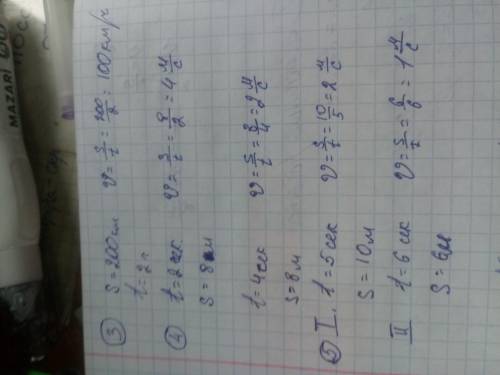 ③ S=200км v=S/t=200/2=100км/ч
t=2ч
④ t=2сек v=S/t=8/2=4 м/с
S=8м
t=4сек v=S/t=8/4=2 м/с
S=8м
⑤ I. t=5сек v=S/t=10/5=2 м/с
S=10м
II t=6сек v=S/t=6/6=1 м/с
S=6м
MAZARI